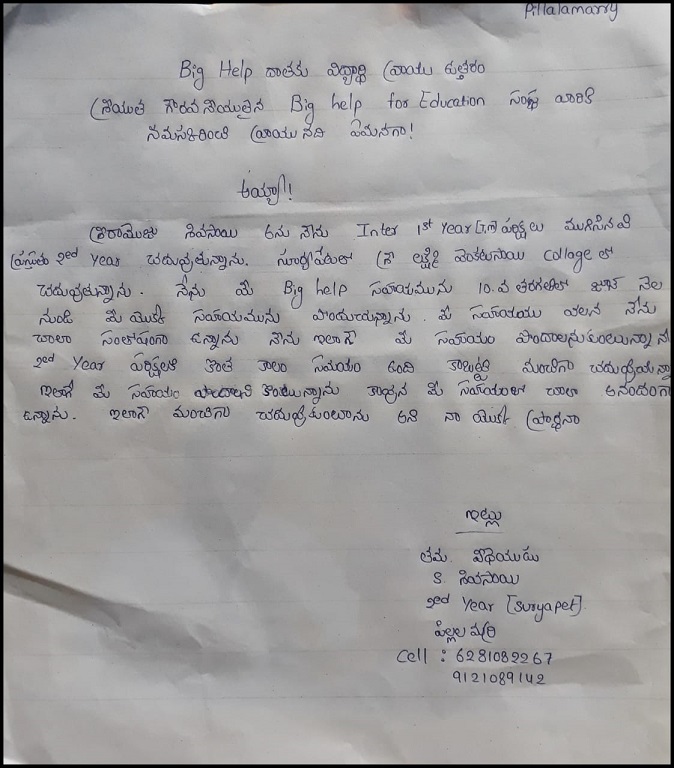 Pillalamarry
Big Help దాతకు విద్యార్థి వ్రాయు ఉత్తరం
శ్రీయుత గౌరవనీయులైన Big help for Education సంస్థ వారికి
నమస్కరించి వ్రాయునది ఏమనగా!
అయ్యా!
శ్రీరామోజు శివసాయి అను నేను Inter 1st Year పరీక్షలు ముగిసినవి
ప్రస్తుతం 2ed Year చదువుతున్నాను. సూర్యాపేటలో శ్రీ లక్ష్మి వెంకటసాయి Collage లో
చదువుతున్నాను. నేను మీ Big help సహాయమును 10.వ తరగతిలో జూన్ నెల
నుండి మీ యొక్క సహాయమును పొందుచున్నాను. మీ సహాయము వలన నేను
చాలా సంతోషంగా ఉన్నాను నేను ఇలాగే మీ సహాయం పొందాలనుకుంటున్నాను
2ed Year పరీక్షలకి కొంత కాలం సమయం ఉంది కాబట్టి మంచిగా
ఇలాగే మీ సహాయం పొందాలని కొంటున్నాను కావున మీ సహాయంలో చాలా ఆనందంగా
ఉన్నాను. ఇలాగే మంచిగా చదువుకుంటాను అని నా యొక్క ప్రార్థనా
ఇట్లు
తమ విధేయుడు
S. శివసాయి
2ed Year [Suryapet].
పిల్లలమర్రి
Cell : 6281082267
9121089142